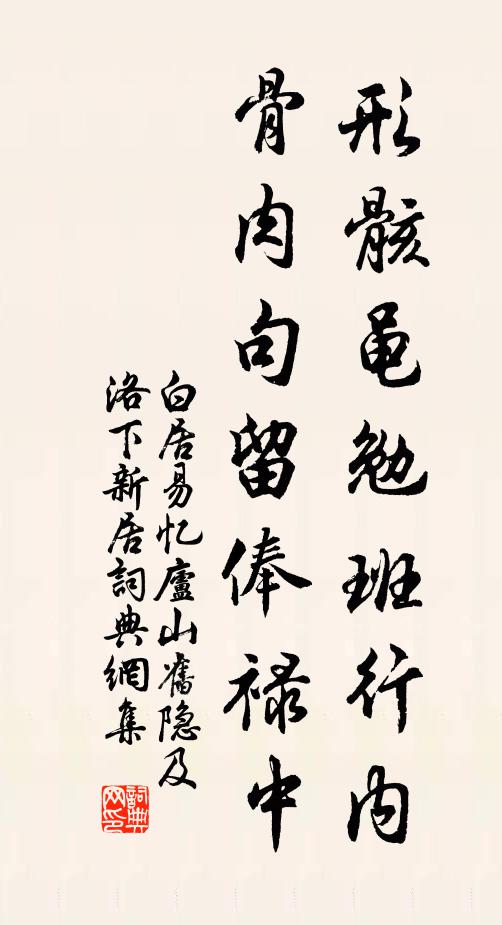 形骸黽勉班行内
骨肉句留俸禄中
白居易忆廬山舊隐及
洛下新居詞典網集
詞典网印